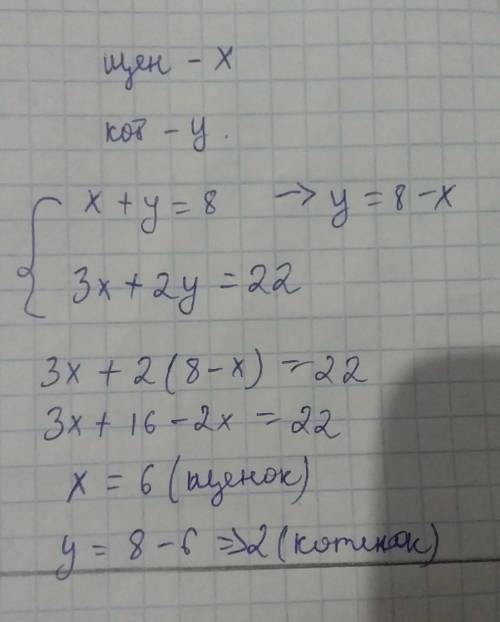 щен - x
кот - y.
x + y = 8 → y = 8 - x
3x + 2y = 22
3x + 2(8 - x) = 22
3x + 16 - 2x = 22
x = 6 (щенок)
y = 8 - 6 => 2 (котенок)